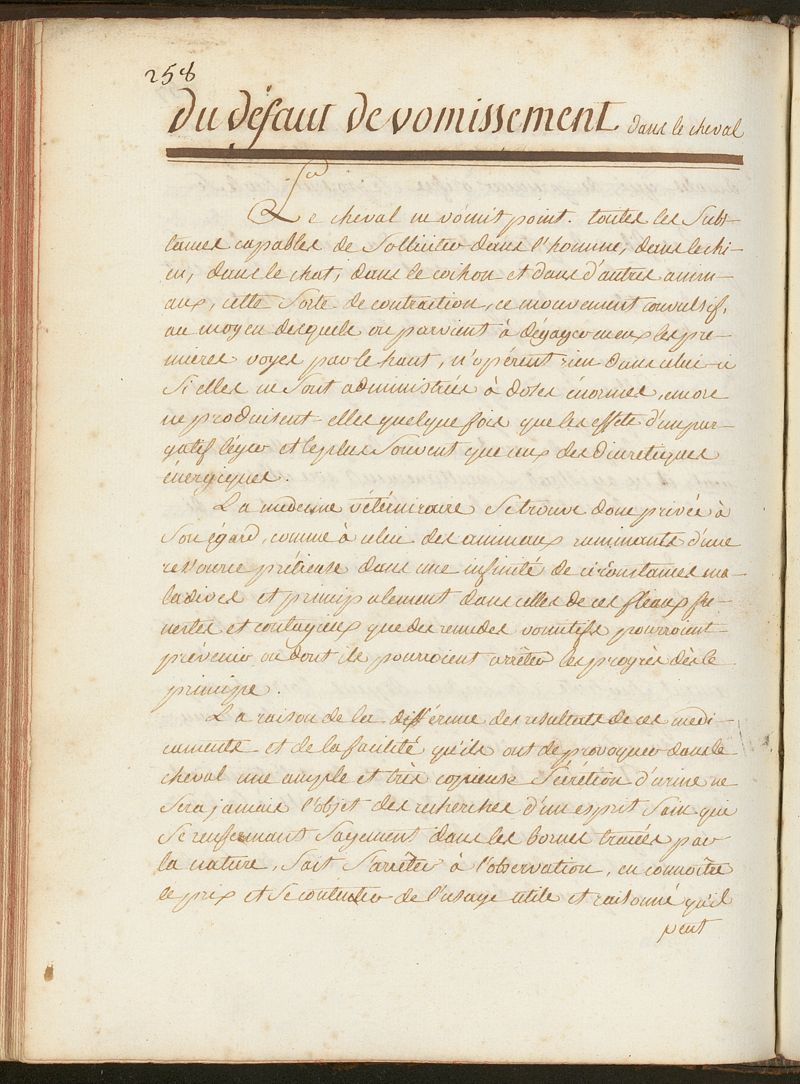 258
du défaut de vomissement dans le cheval
Le cheval ne vomit point. toutes les subs-
tances capables de solliciter dans l'homme, dans le chi-
en, dans le chat, dans le cochon et dans d'autres anim-
aux, cette sorte de contraction, ce mouvement convulsif,
au moyen desquels on parvient à dégager en eux les pre-
mieres voyes par le haut, n'opérent rien dans celui-ci
si elles ne sont administrées à doses énormes, encore
ne produisent-elles quelque fois que les effets d'un pur-
gatif léger et le plus souvent que ceux des diuretiques
énergiques.
La medecine vétérinaire se trouve donc privée à
son égard, comme à celui des animaux ruminants d'une
ressource prétieuse dans une infinité de circonstances ma-
ladives et principalement dans celles de ces fleaux fu-
nestes et contagieux que des remedes vomitifs pourroient
prévenir ou dont ils pourroient arrêter les progrès dès le
principe.
La raison de la différence des resultats de ces medi-
caments et de la facilité qu'ils ont de provoquer dans le
cheval une ample et très copieuse sécrétion d'urine ne
sera jamais l'objet des recherches d'un esprit sain qui
se renfermant sagement dans les bornes tracées par
la nature, sait s'arrêter à l'observation, en connoitre
le prix et se contenter de l'usage utile et raisonné qu'il
peut